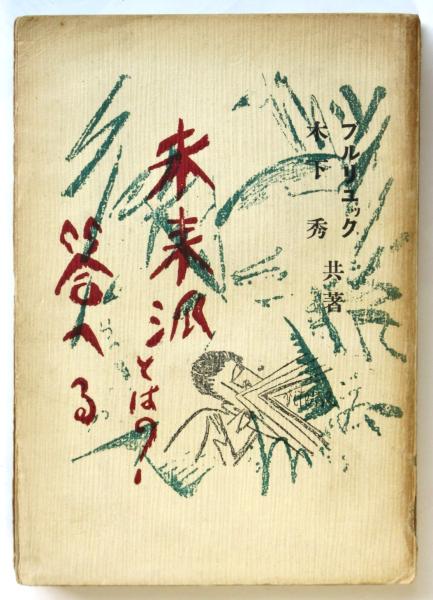 ブルリユック
木下秀
共著
未来派とは?
答へる